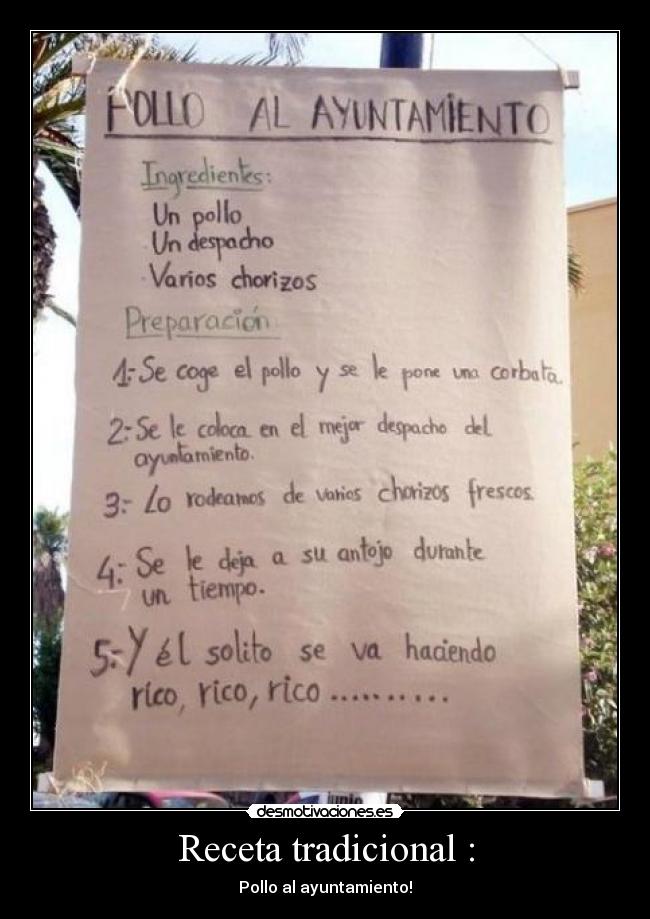 POLLO AL AYUNTAMIENTO
Ingredientes:
Un pollo
Un despacho
Varios chorizos
Preparación:
1:- Se coge el pollo y se le pone una corbata.
2:- Se le coloca en el mejor despacho del
ayuntamiento.
3:- Lo rodeamos de varios chorizos frescos.
4:- Se le deja a su antojo durante
un tiempo.
5:- Y él solito se va haciendo
rico, rico, rico ..........
junio
desmotivaciones.es
Receta tradicional :
Pollo al ayuntamiento!